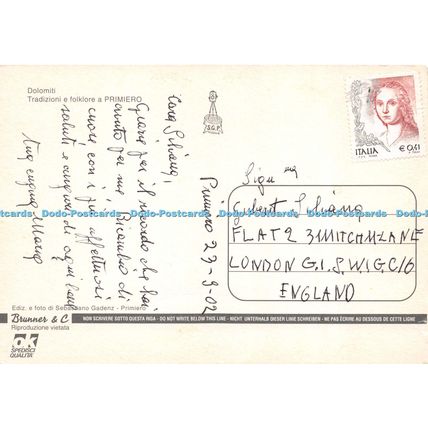 Dolomiti
Tradizioni e folklore a PRIMIERO
Cara Silvana,
Grazie per il ricordo che hai
avuto per me. Ricambio di
cuore con i più affettuosi
saluti e auguri di ogni bene
Tua cugina
Primiero 23-9-02
S.G.P.
ITALIA
€ 0,41
Sig.na
Silvana
FLAT 2 3
LONDON G.I.S.W.
ENGLAND
Dodo-Postcards Dodo-Postcards Dodo-Postcards Dodo-Postcards
Ediz. e foto di Sebastiano Gadenz - Primiero
Brunner & C
Riproduzione vietata
NON SCRIVERE SOTTO QUESTA RIGA - DO NOT WRITE BELOW THIS LINE - NICHT UNTERHALB DIESER LINIE SCHREIBEN - NE PAS ÉCRIRE AU DESSOUS DE CETTE LIGNE
OK
SPEDISCI
QUALITÀ